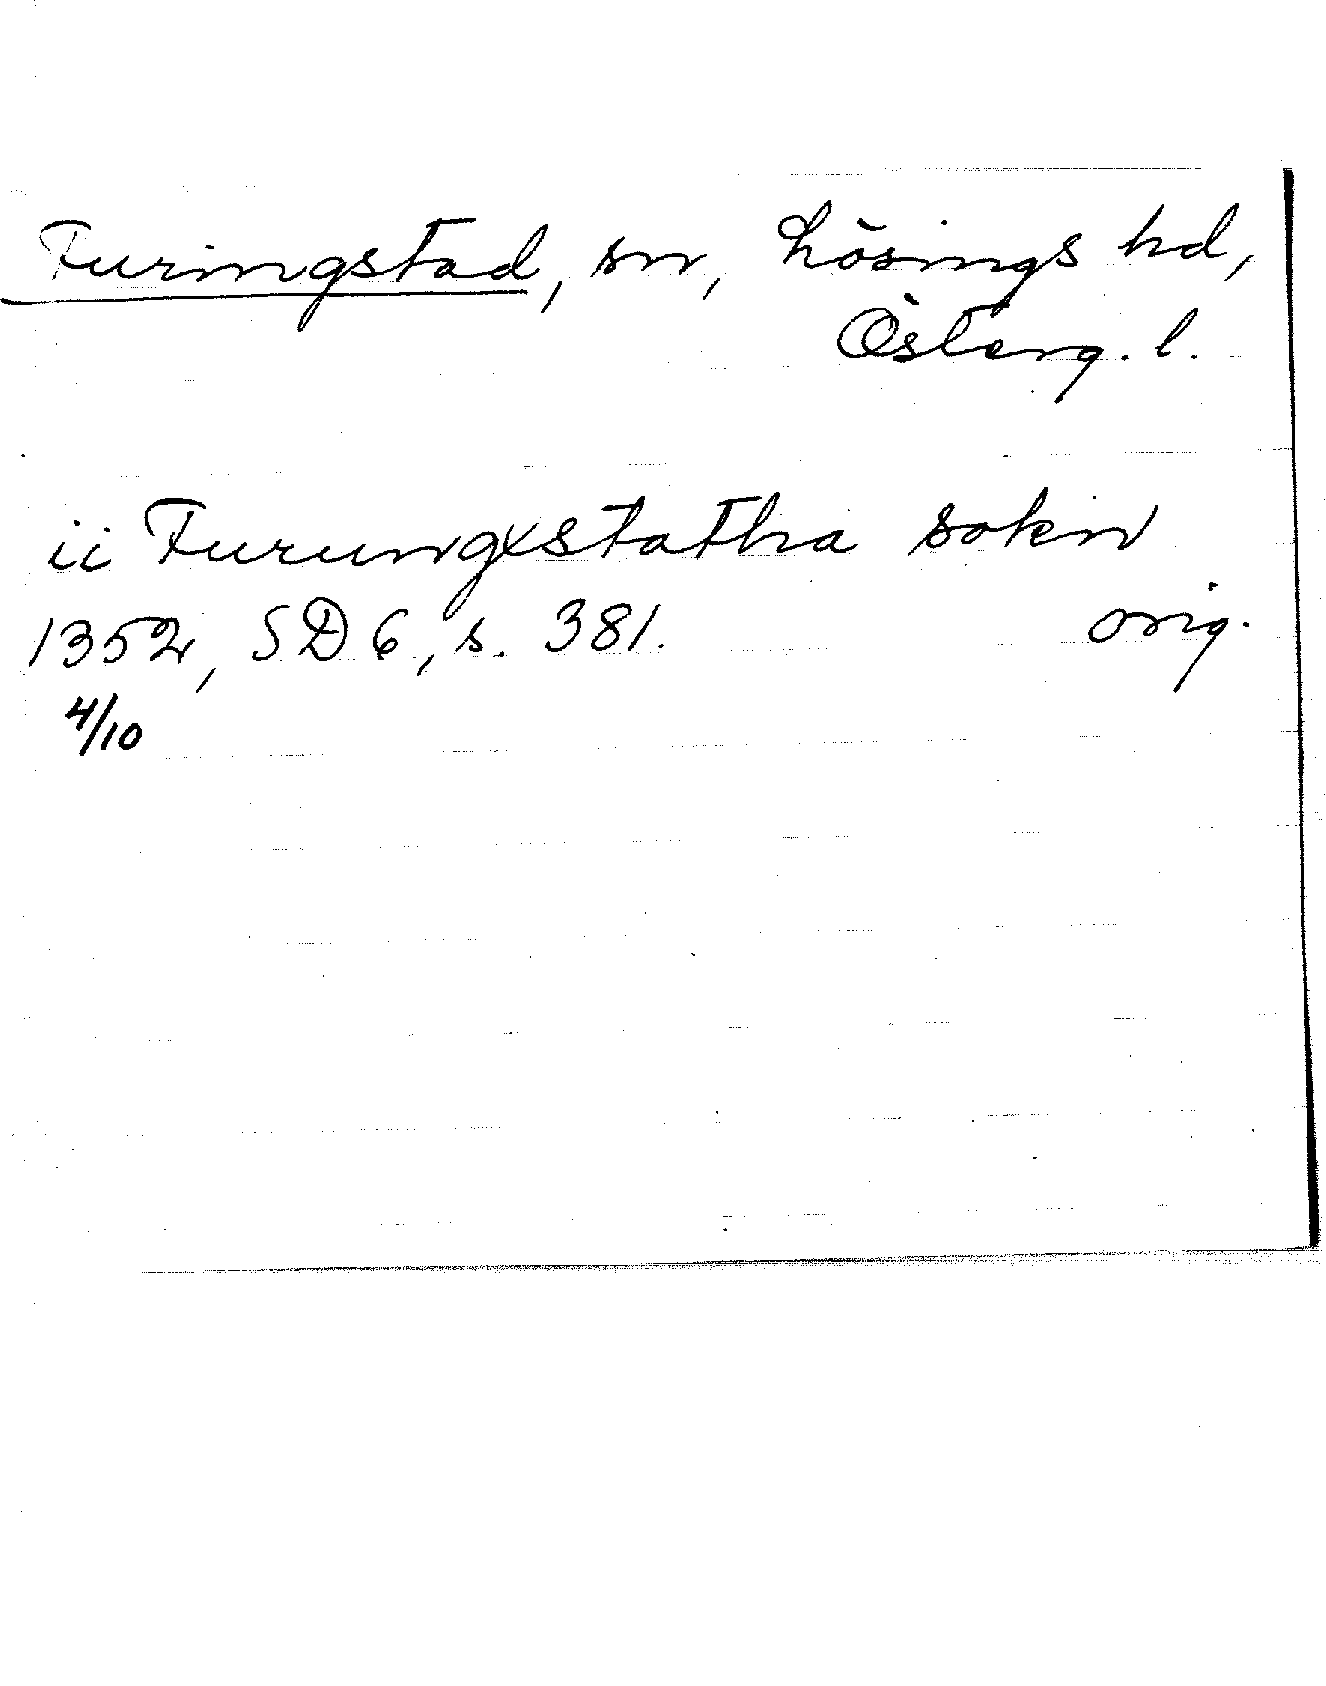 Furingstad, sn, Lösings hd,
Österg. l.
ii Furungxstatha sokn
1352, SD 6, s. 381. orig.
4/10